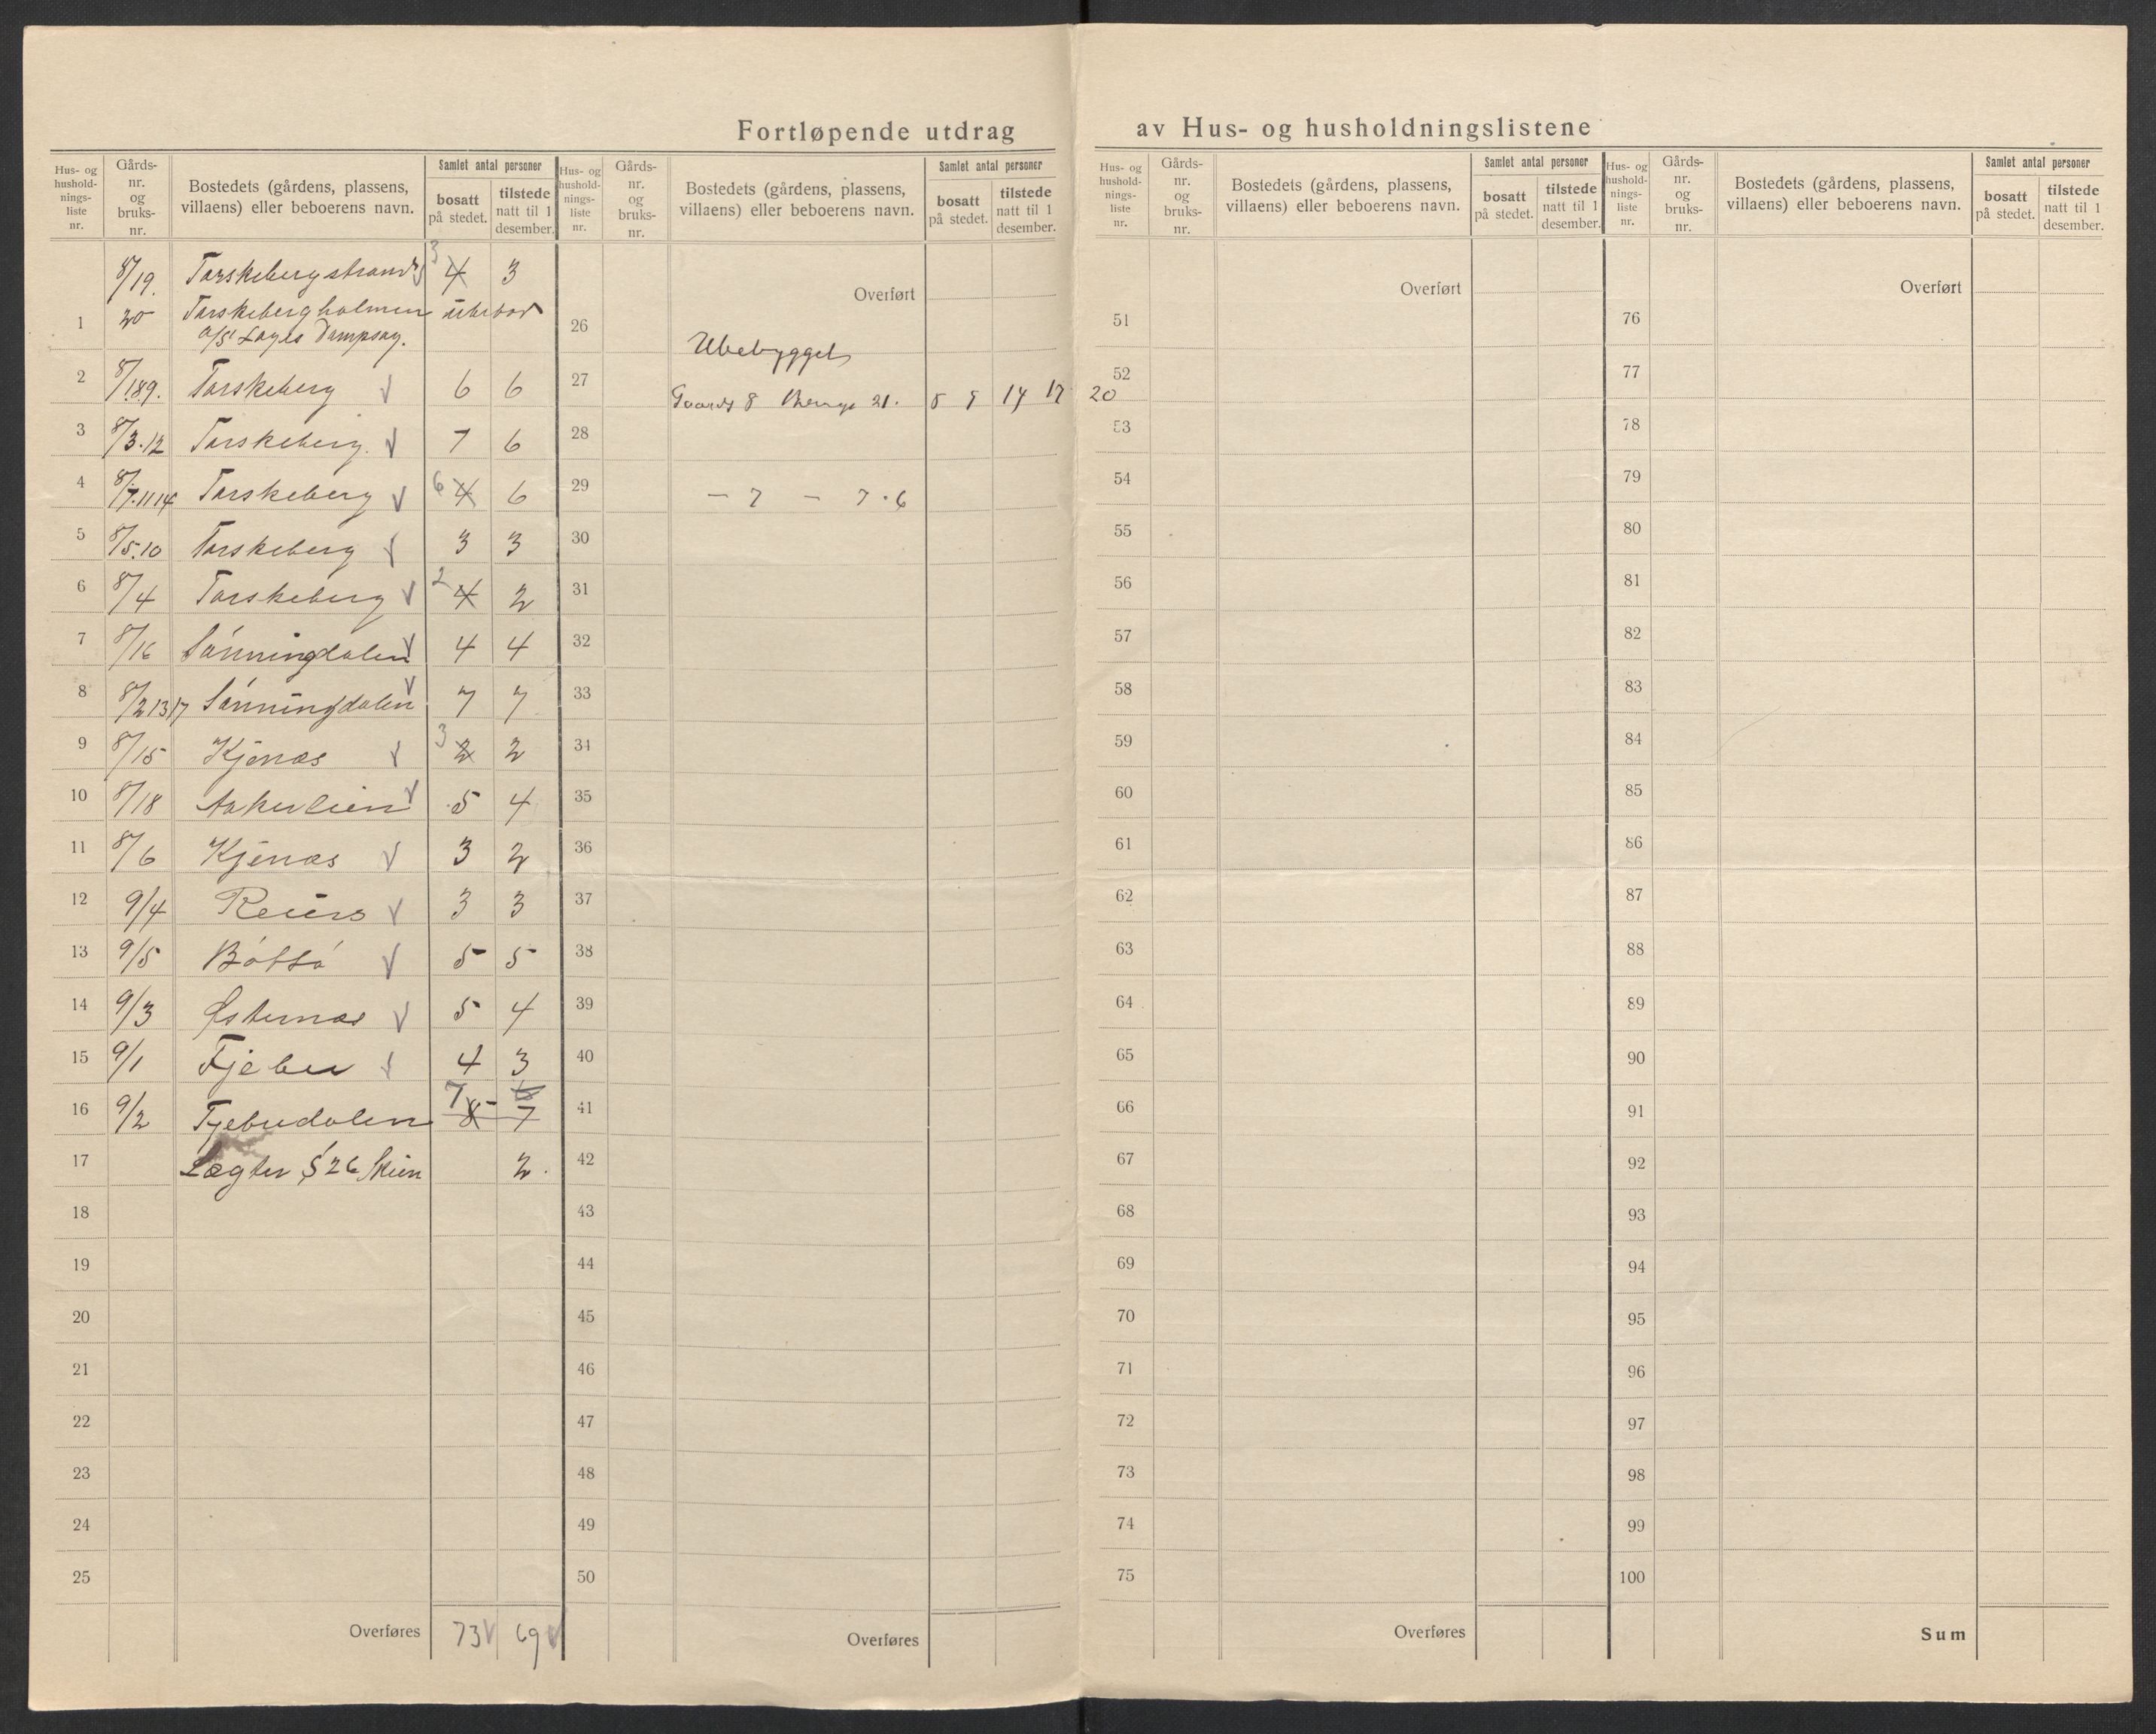 Fortløpende utdrag av Hus- og husholdningslistene
Hus- og husholdningsliste nr. | Gårds-nr. og bruks-nr. | Bostedets (gårdens, plassens, villaens) eller beboerens navn. | Samlet antal personer | bosatt på stedet. | tilstede natt til 1 desember.
8/19. Torskebergstrand 3 4 3
1 20 Torskebergholmen ubebod
A/S Lagls Dampsag.
2 8/1.8.9. Torskeberg V 6 6
3 8/3.12 Torskeberg. V 7 6
4 8/7.11 14 Torskeberg V 6 4 6
5 8/5.10 Torskeberg V 3 3
6 8/4 Torskeberg V 2 4 2
7 8/16 Sønningdalen V 4 4
8 8/2 13 17 Sønningdalen V 7 7
9 8/15 Kjønæs V 3 2 2
10 8/18 Aakerlien V 5 4
11 8/6 Kjønæs V 3 2
12 9/4 Reiers V 3 3
13 9/5 Bøttø V 5 5
14 9/3 Østernæs V 5 4
15 9/1 Fjebu V 4 3
16 9/2 Fjebudalen 7 8 - 6 7
17 Lægter § 26 Skien 2.
18
19
20
21
22
23
24
25
Overføres 73 V 69 V
Hus- og husholdningsliste nr. | Gårds-nr. og bruks-nr. | Bostedets (gårdens, plassens, villaens) eller beboerens navn. | Samlet antal personer | bosatt på stedet. | tilstede natt til 1 desember.
Overført
26
Ubebygget
27 Gaards 8 21. 14 17 20
28
29 — 7 — 7 . 6
30
31
32
33
34
35
36
37
38
39
40
41
42
43
44
45
46
47
48
49
50
Overføres
Hus- og husholdningsliste nr. | Gårds-nr. og bruks-nr. | Bostedets (gårdens, plassens, villaens) eller beboerens navn. | Samlet antal personer | bosatt på stedet. | tilstede natt til 1 desember.
Overført
51
52
53
54
55
56
57
58
59
60
61
62
63
64
65
66
67
68
69
70
71
72
73
74
75
Overføres
Hus- og husholdningsliste nr. | Gårds-nr. og bruks-nr. | Bostedets (gårdens, plassens, villaens) eller beboerens navn. | Samlet antal personer | bosatt på stedet. | tilstede natt til 1 desember.
Overført
76
77
78
79
80
81
82
83
84
85
86
87
88
89
90
91
92
93
94
95
96
97
98
99
100
Sum